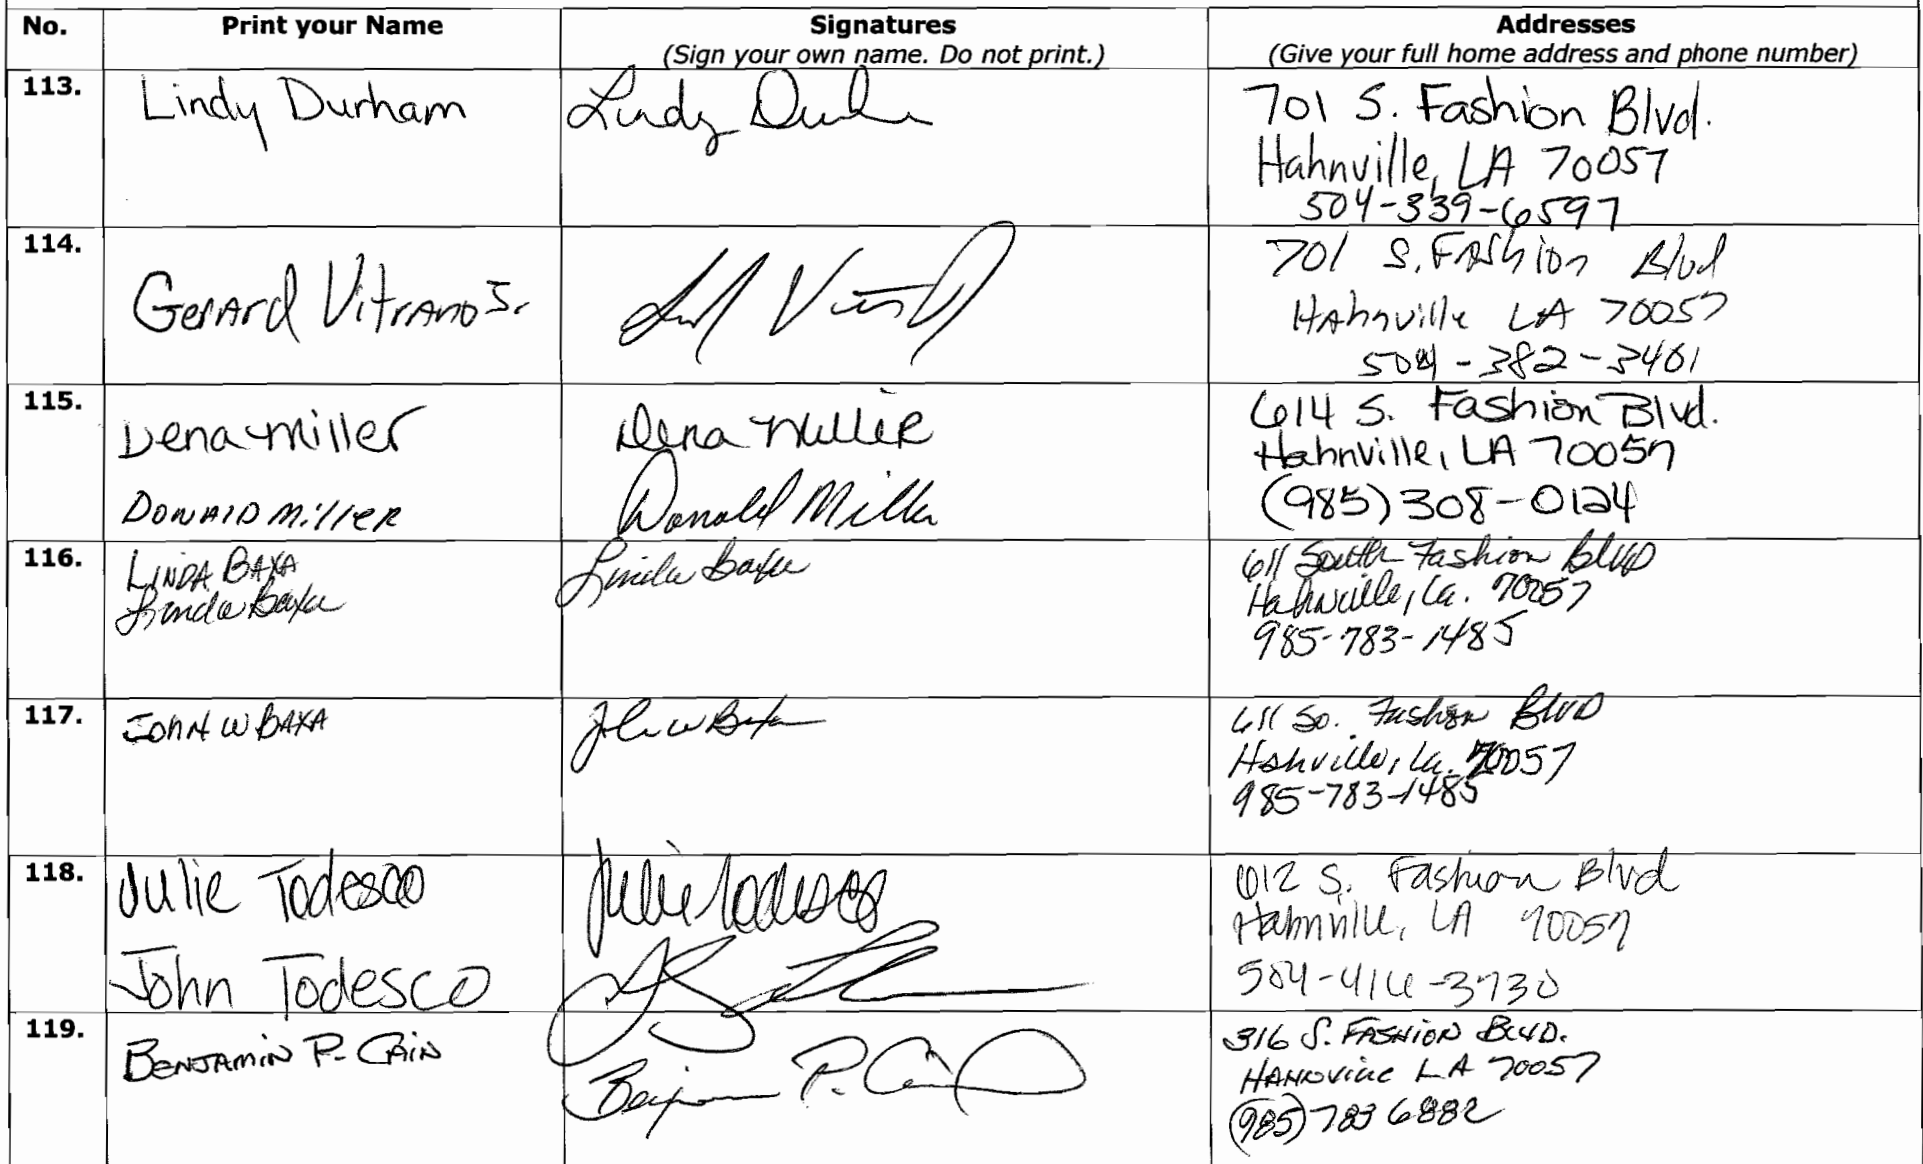 No. Print your Name Signatures Addresses
(Sign your own name. Do not print.) (Give your full home address and phone number)
113. Lindy Durham Lindy Durham 701 S. Fashion Blvd.
Hahnville, LA 70057
504-339-6597
114. Gerard Vitrano Sr. 701 S. Fashion Blvd
Hahnville LA 70057
504-382-3401
115. Dena Miller Dena Miller 614 S. Fashion Blvd.
Hahnville, LA 70057
Donald Miller Donald Miller (985) 308-0124
116. Linda Baxa Linda Baxa 611 South Fashion Blvd
Linda Baxa Hahnville, La. 70057
985-783-1485
117. John W Baxa John W Baxa 611 So. Fashion Blvd
Hahnville, La. 70057
985-783-1485
118. Julie Todesco Julie Todesco 612 S. Fashion Blvd
Hahnville, LA 70057
John Todesco 504-416-3730
119. Benjamin P. Cain Benjamin P. Cain 316 S. Fashion Blvd.
Hahnville LA 70057
(985) 783 6882